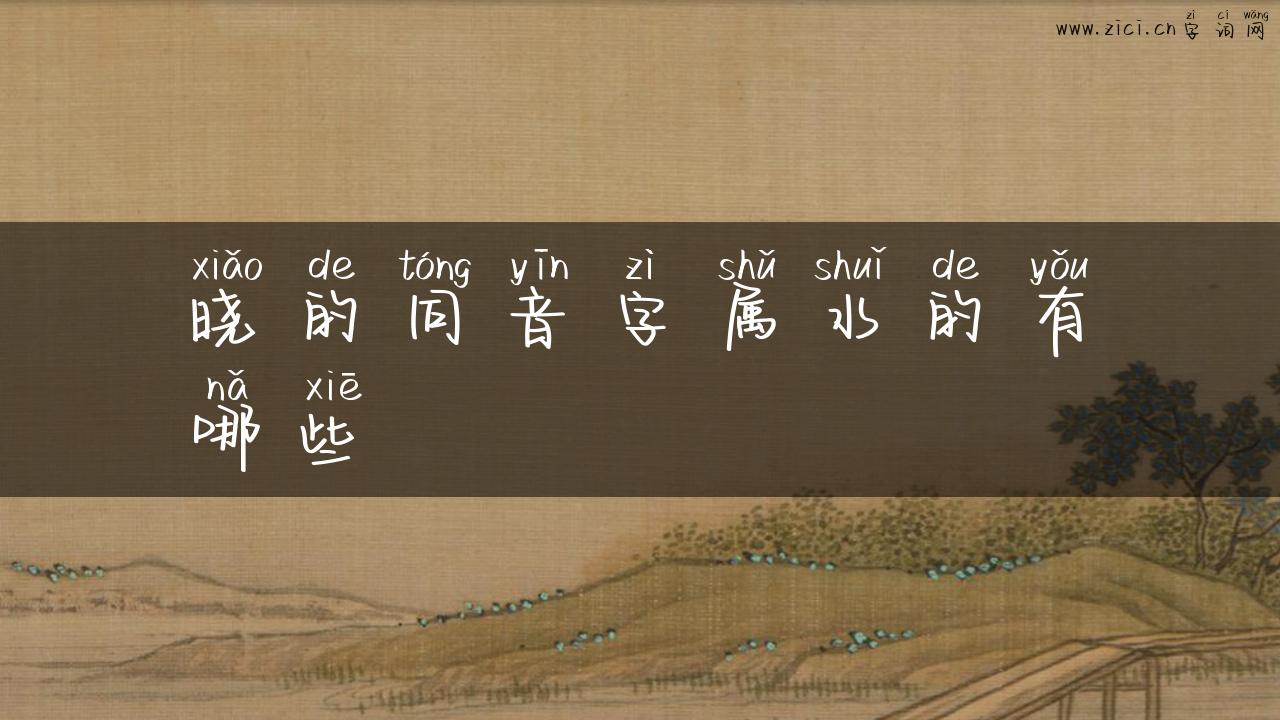 zì cí wǎng
www.zici.cn字词网
xiǎo de tóng yīn zì shǔ shuǐ de yǒu
晓的同音字属水的有
nǎ xiē
哪些